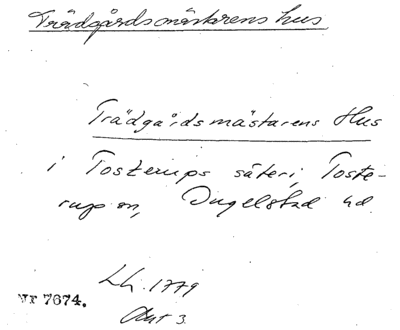 Trädgårdsmästarens hus
Trädgårdsmästarens Hus
i Tosterups säteri, Toste-
rup sn, Ingelstad hd.
Lh. 1779
Akt 3.
Nr 7674.